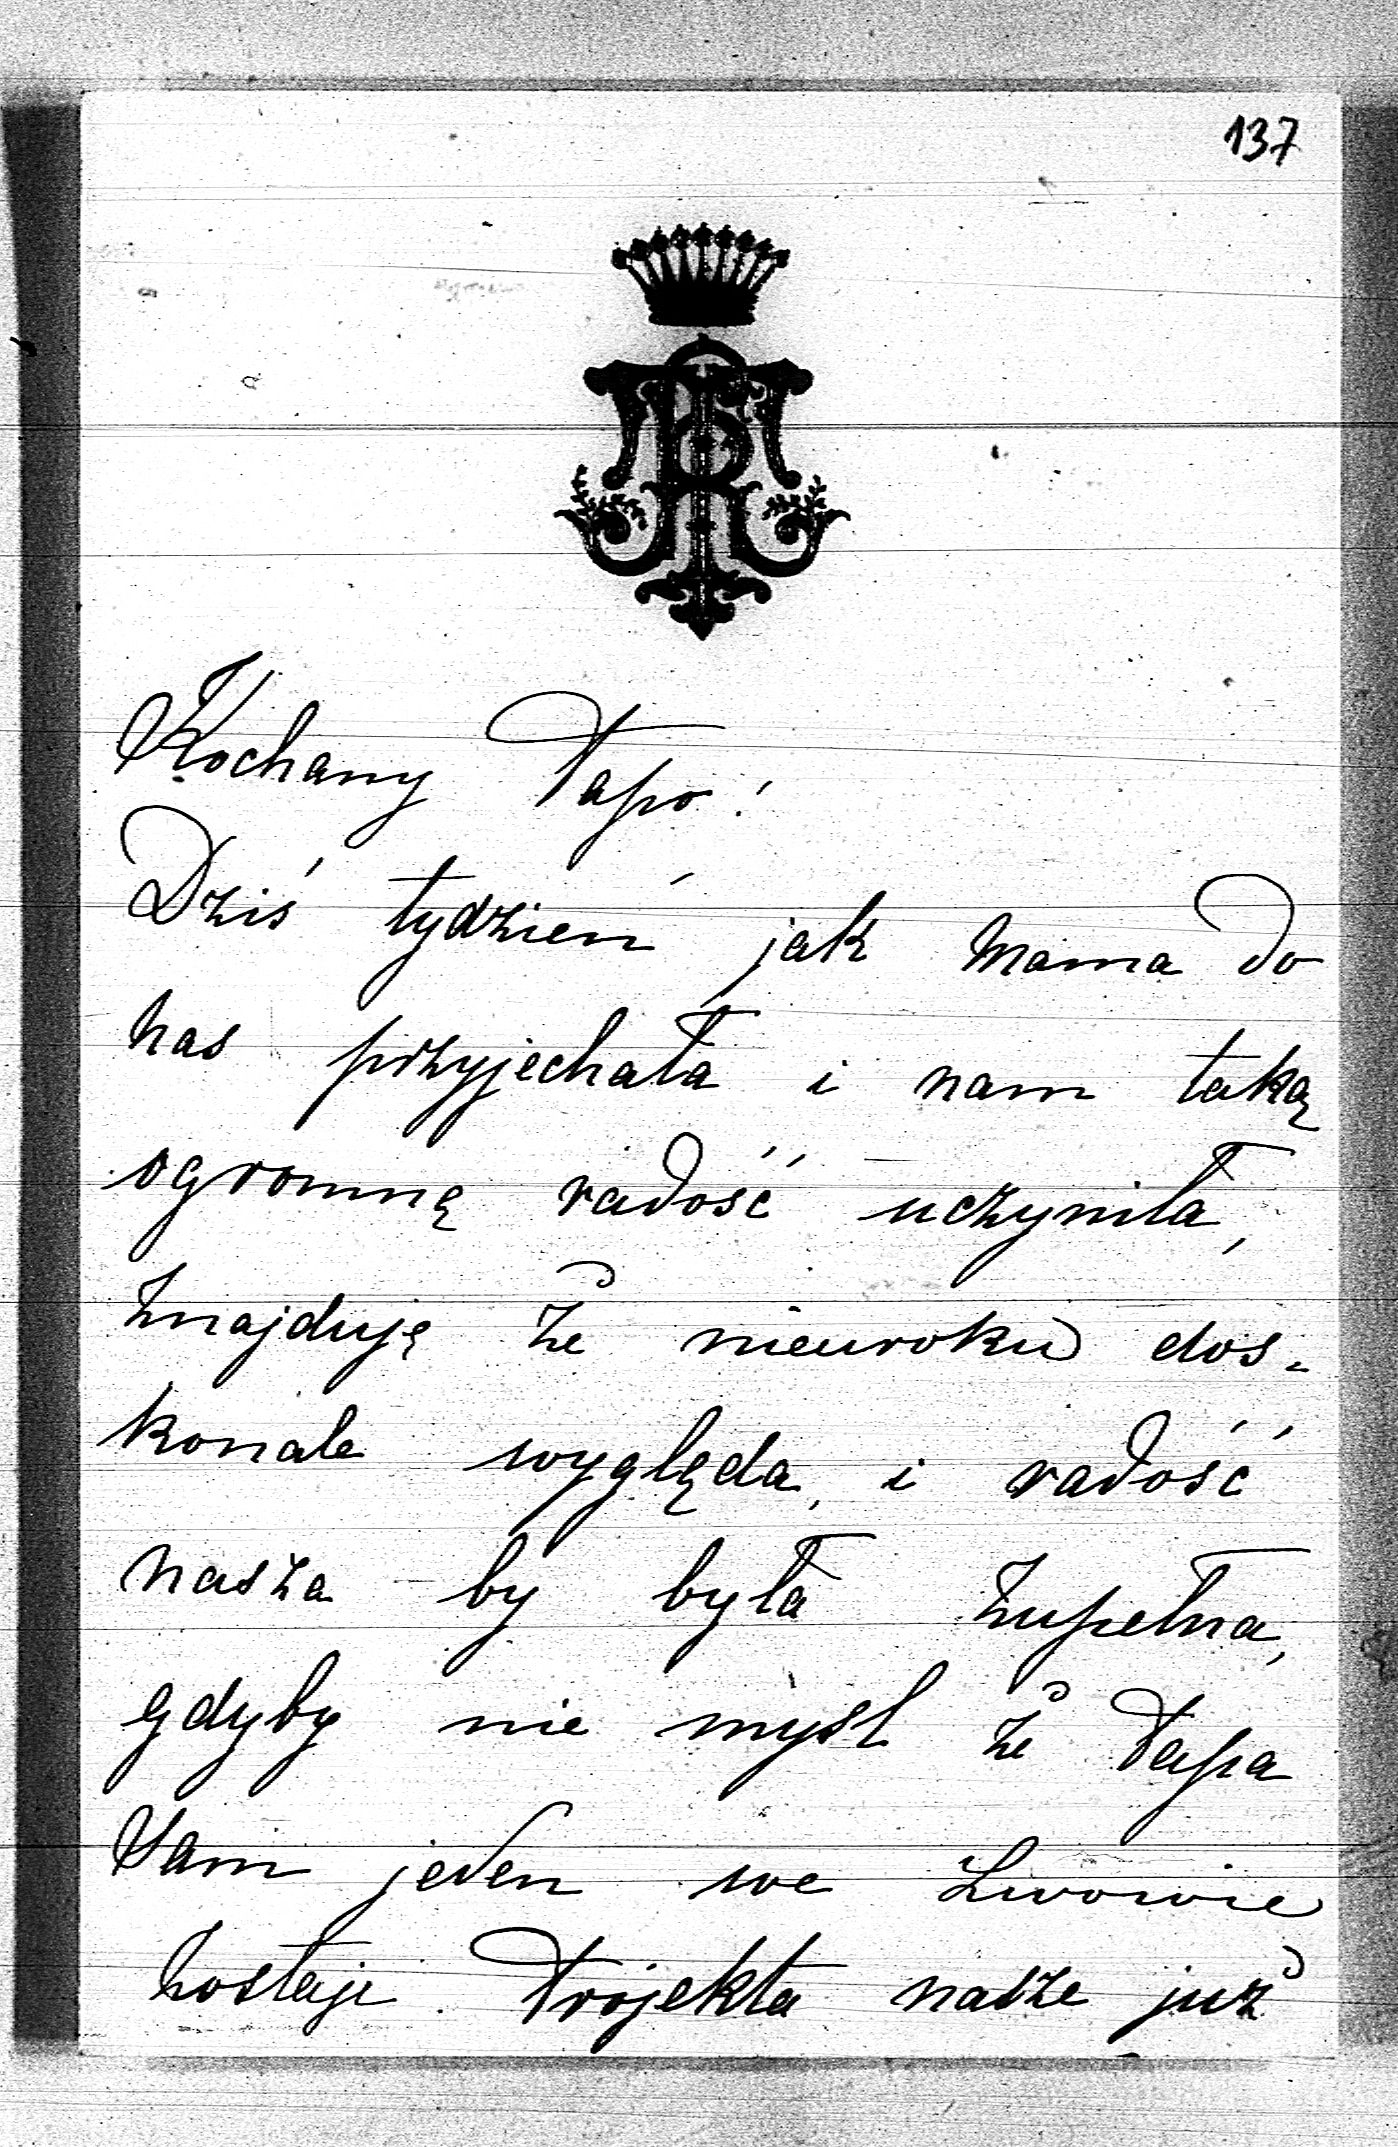 137
Kochany Papo!
Dziś tydzień jak Mama do
nas przyjechała i nam taką
ogromną radość uczyniła,
znajduję że nieuroku dos-
konale wyględa, i radość
nasza by była zupełna,
gdyby nie myśl że Papa
Sam jeden we Lwowie
zostaje. Projekta nasze już